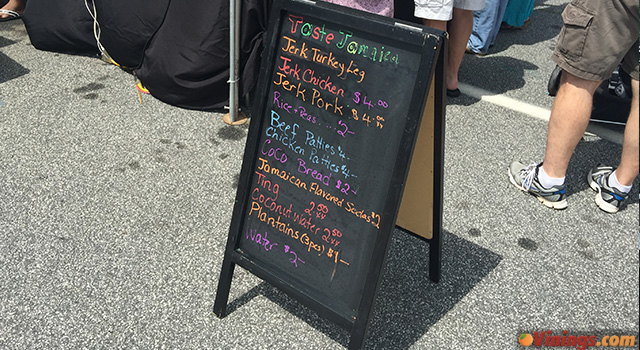 Taste Jamaica
Jerk Turkey Leg
Jerk Chicken $4.00
Jerk Pork $4.00
Rice + Peas .... 2-
Beef Patties $4-
Chicken Patties $4-
Coco Bread $2-
Jamaican Flavored Sodas $2
Ting 2.50
Coconut Water 2.50
Plantains (3pcs) $1-
Water $2-
Vinings.com